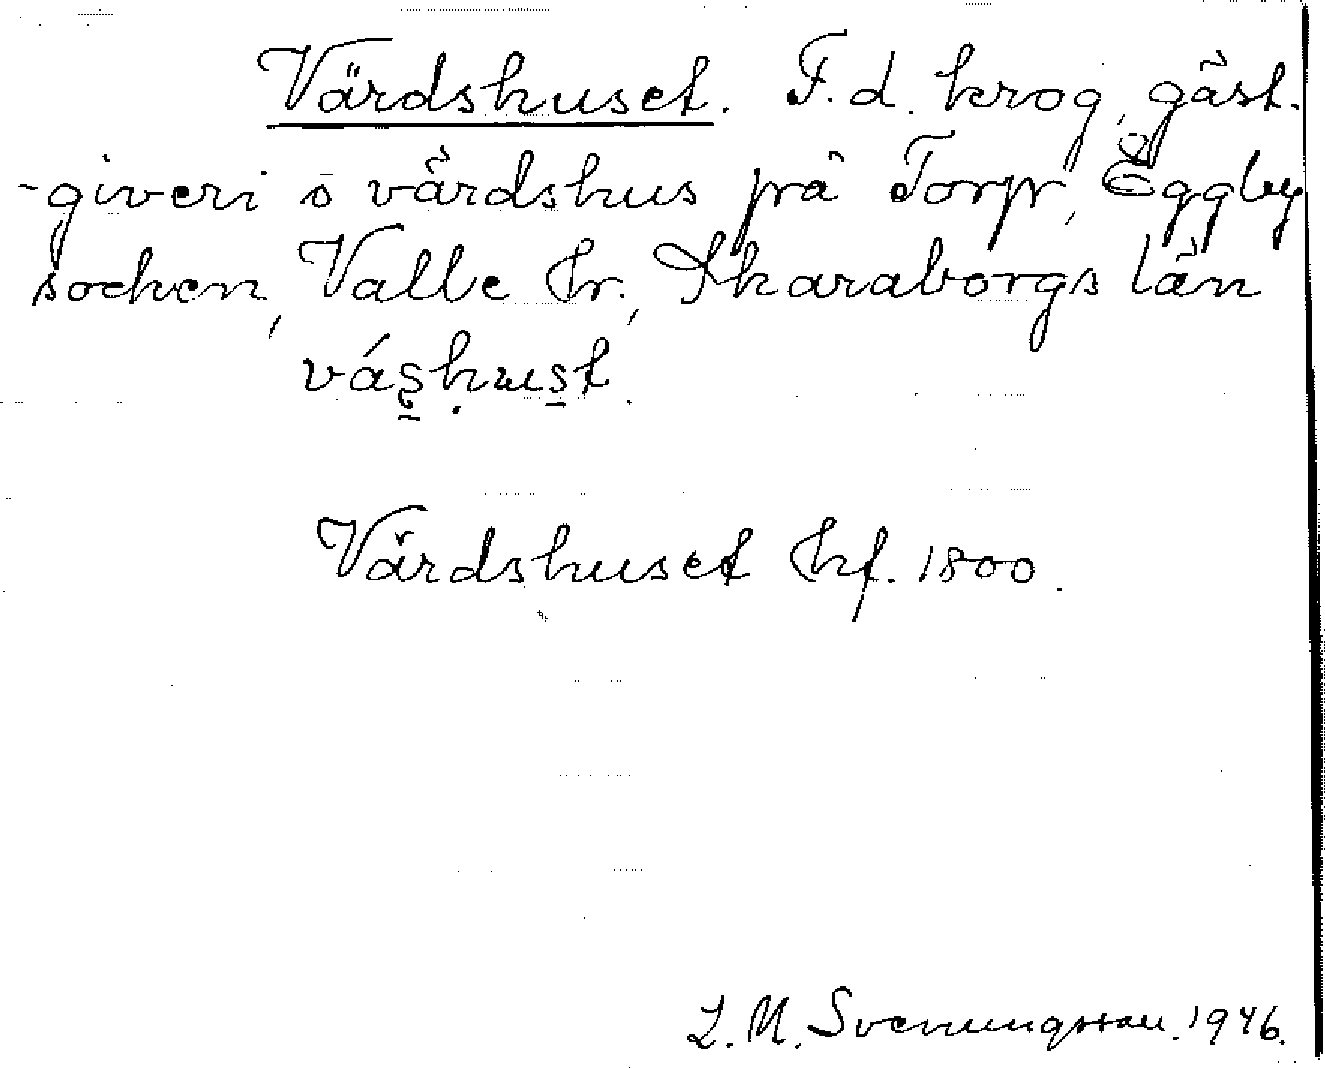 Värdshuset. F.d. krog, gäst-
-giveri o värdshus på Torp, Eggby
socken, Valle hr., Skaraborgs län
vás̱ḥus̱t.
Värdshuset hf. 1800.
L. M. Svenungsson. 1946.